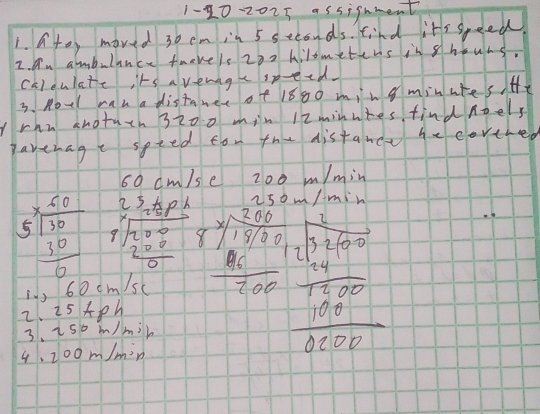 1-20-2025 assignment
1. A toy moved 30 cm in 5 seconds. find its speed.
2. An ambulance travels 200 kilometers in 8 hours.
Calculate its average speed.
3. Noel ran a distance of 1880 m in 8 minutes. He
ran anothen 3200 m in 12 minnutes. find Noels
avenage speed fon the distance he covered
60 cm/sc 200 m/min
25 kph 250 m/min
60 200 2
5 30 8 200 8 1800 12 3200
30 200 16 24
0 0 200 1200
100
0200
1.) 60 cm/sc
2. 25 kph
3. 250 m/min
4. 200 m/min